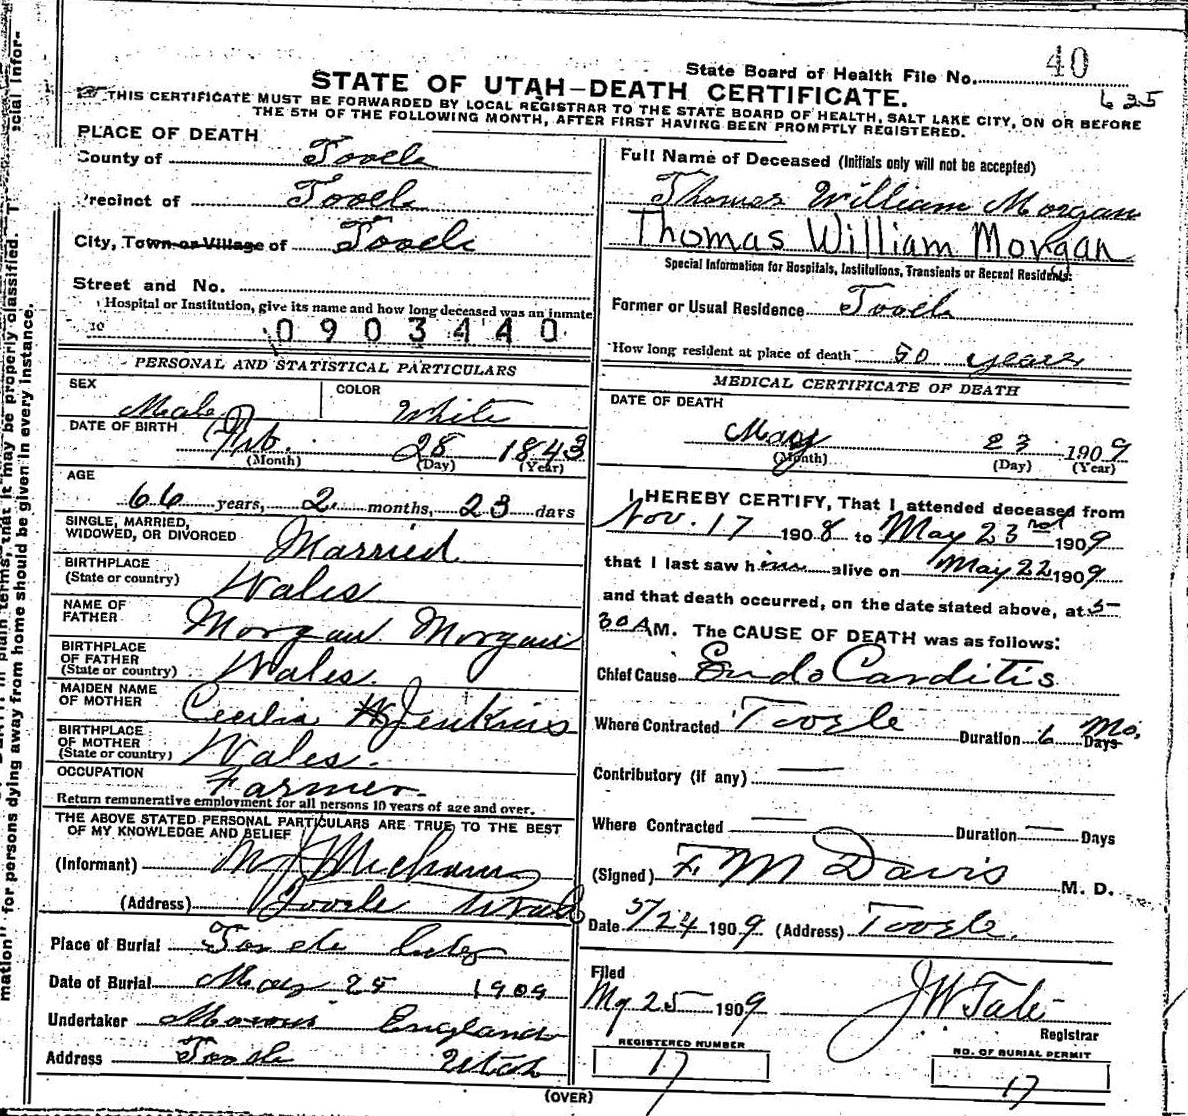 State Board of Health File No. 40
STATE OF UTAH—DEATH CERTIFICATE.
625
THIS CERTIFICATE MUST BE FORWARDED BY LOCAL REGISTRAR TO THE STATE BOARD OF HEALTH, SALT LAKE CITY, ON OR BEFORE
THE 5TH OF THE FOLLOWING MONTH, AFTER FIRST HAVING BEEN PROMPTLY REGISTERED.
PLACE OF DEATH
County of Tooele
Precinct of Tooele
City, Town or Village of Tooele
Street and No.
Hospital or Institution, give its name and how long deceased was an inmate
0903440
PERSONAL AND STATISTICAL PARTICULARS
SEX
Male
COLOR
White
DATE OF BIRTH
Feb. 28 1843
(Month) (Day) (Year)
AGE
66 years, 2 months, 23 days
SINGLE, MARRIED,
WIDOWED, OR DIVORCED
Married
BIRTHPLACE
(State or country)
Wales
NAME OF
FATHER
Morgan Morgan
BIRTHPLACE
OF FATHER
(State or country)
Wales.
MAIDEN NAME
OF MOTHER
Cecelia Jenkins
BIRTHPLACE
OF MOTHER
(State or country)
Wales.
OCCUPATION
Farmer.
Return remunerative employment for all persons 10 years of age and over.
THE ABOVE STATED PERSONAL PARTICULARS ARE TRUE TO THE BEST
OF MY KNOWLEDGE AND BELIEF
(Informant)
(Address) Tooele Utah
Place of Burial Tooele City
Date of Burial May 25 1909
Undertaker England
Address Tooele Utah
Full Name of Deceased (Initials only will not be accepted)
Thomas William Morgan
Thomas William Morgan
Special Information for Hospitals, Institutions, Transients or Recent Residents:
Former or Usual Residence Tooele
How long resident at place of death 50 years
MEDICAL CERTIFICATE OF DEATH
DATE OF DEATH
May 23 1909
(Month) (Day) (Year)
I HEREBY CERTIFY, That I attended deceased from
Nov. 17 1908 to May 23rd 1909
that I last saw him alive on May 22 1909
and that death occurred, on the date stated above, at 5
30 A M. The CAUSE OF DEATH was as follows:
Chief Cause Endo Carditis
Where Contracted Tooele Duration 6 Mo. Days
Contributory (if any) —
Where Contracted — Duration — Days
(Signed) F. M Davis M. D.
Date 5/24 1909 (Address) Tooele.
Filed
My 25 1909
J W Tate
Registrar
REGISTERED NUMBER
17
NO. OF BURIAL PERMIT
17
(OVER)
mation" for persons dying away from home should be given in every instance.
in plain terms, that it may be properly classified.
cial Infor-